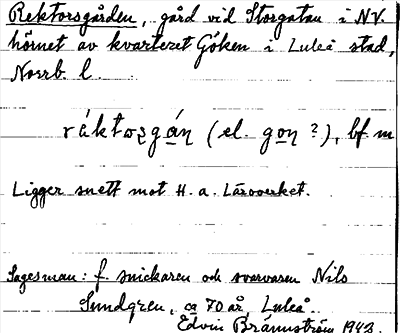 Rektorsgården, gård vid Storgatan i NV.
hörnet av kvarteret Göken i Luleå stad,
Norrb. l.
ráktosgán (el. gon ?), bf. m
Ligger snett mot H. a. Läroverket.
Sagesman: f. snickaren och svarvaren Nils
Sundgren, ca 70 år, Luleå.
Edvin Brännström 1943.